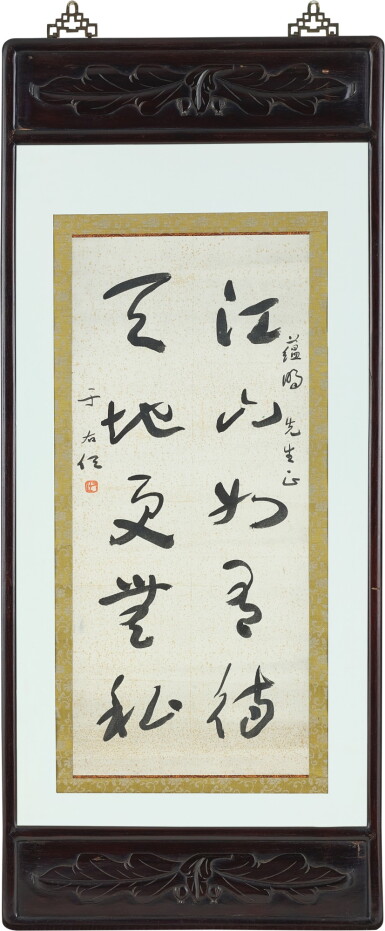 蘊明 先生正
江山如有待
天地更無私
于右任